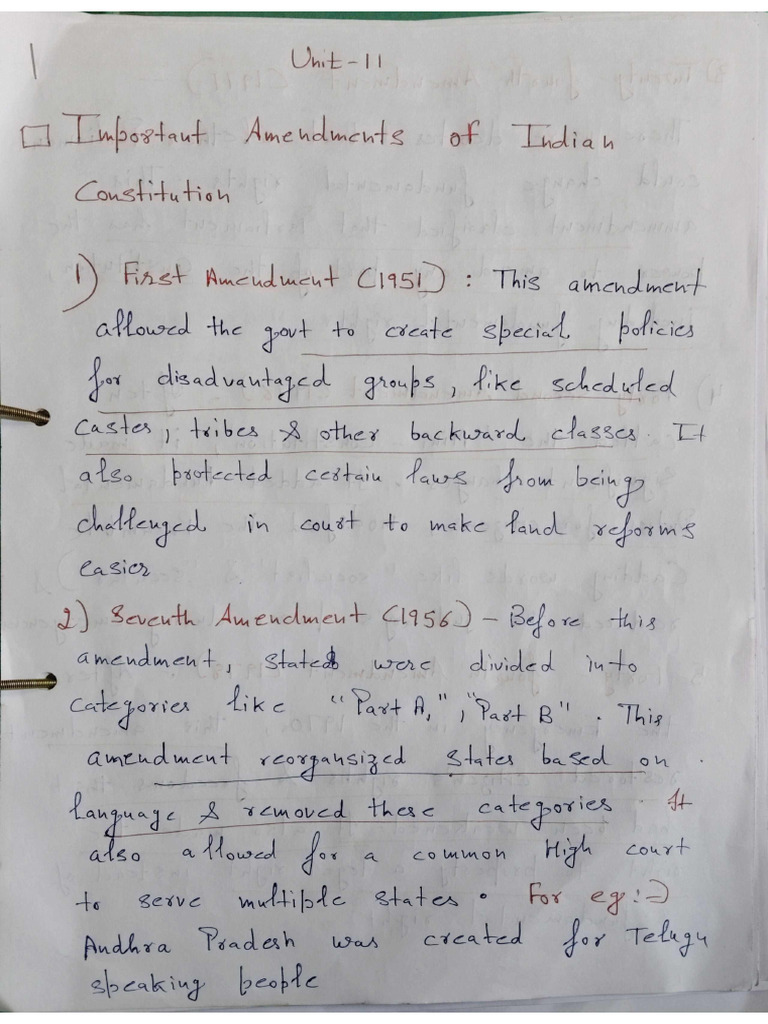 1
Unit-11
Important Amendments of Indian
Constitution
1) First Amendment (1951) : This amendment
allowed the govt to create special policies
for disadvantaged groups, like scheduled
castes, tribes & other backward classes. It
also protected certain laws from being
challenged in court to make land reforms
easier
2) Seventh Amendment (1956) - Before this
amendment, states were divided into
categories like "Part A,", "Part B". This
amendment reorgansized states based on
language & removed these categories. It
also allowed for a common High court
to serve multiple states. For eg:⇒
Andhra Pradesh was created for Telugu
speaking people